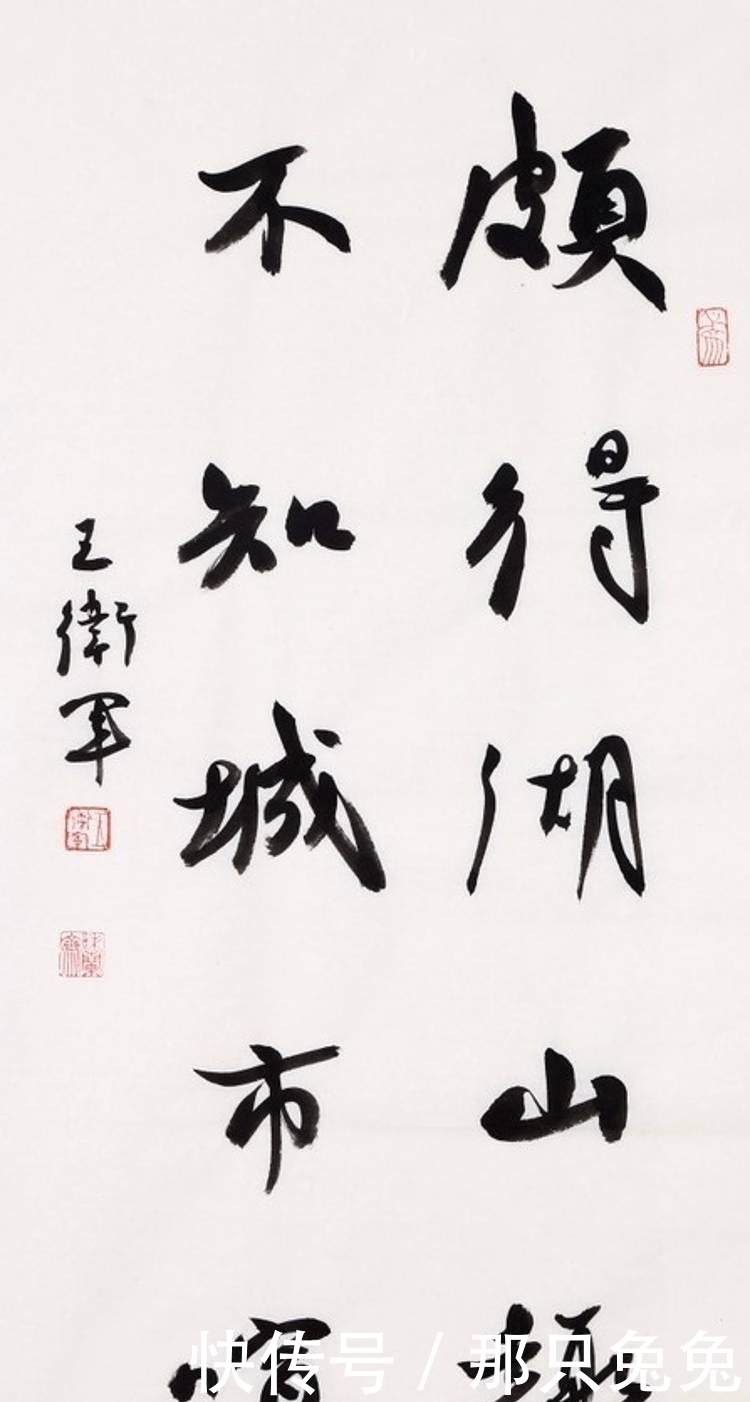 頗得湖山趣
不知城市喧
王衛軍
快传号 / 那只兔兔